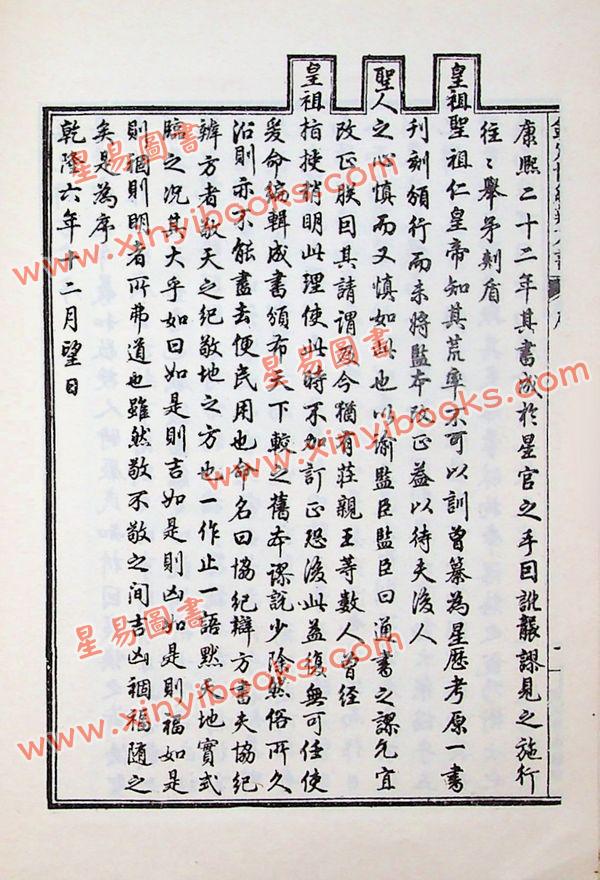 康熙二十二年其書成於星官之手因訛襲謬見之施行
往〻舉矛刺盾
皇祖聖祖仁皇帝知其荒率不可以訓曾纂為星歷考原一書
刊刻頒行而未將監本改正蓋以待夫後人
聖人之心慎而又慎如此也以諭監臣監臣曰通書之謬允宜
改正朕曰其請謂及今猶有莊親王等數人曾經
皇祖指授稍明此理使此時不加訂正恐後此益復無可任使
爰命編輯成書頒布天下較之舊本謬說少除然俗所久
沿則亦不能盡去便民用也命名曰協紀辯方書夫協紀
辯方者敬天之紀敬地之方也一作止一語默天地實式
臨之況其大乎如曰如是則吉如是則凶如是則福如是
則禍則明者所弗道也雖然敬不敬之間吉凶禍福隨之
矣是為序
乾隆六年十二月望日
星易圖書
www.xinyibooks.com
星易圖書
www.xinyibooks.com
星易圖書
www.xinyibooks.com
星易圖書
www.xinyibooks.com